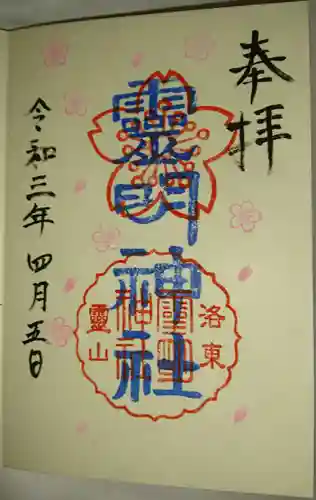 奉拝
靈明神社
洛東
靈明神社
靈山
令和三年四月五日